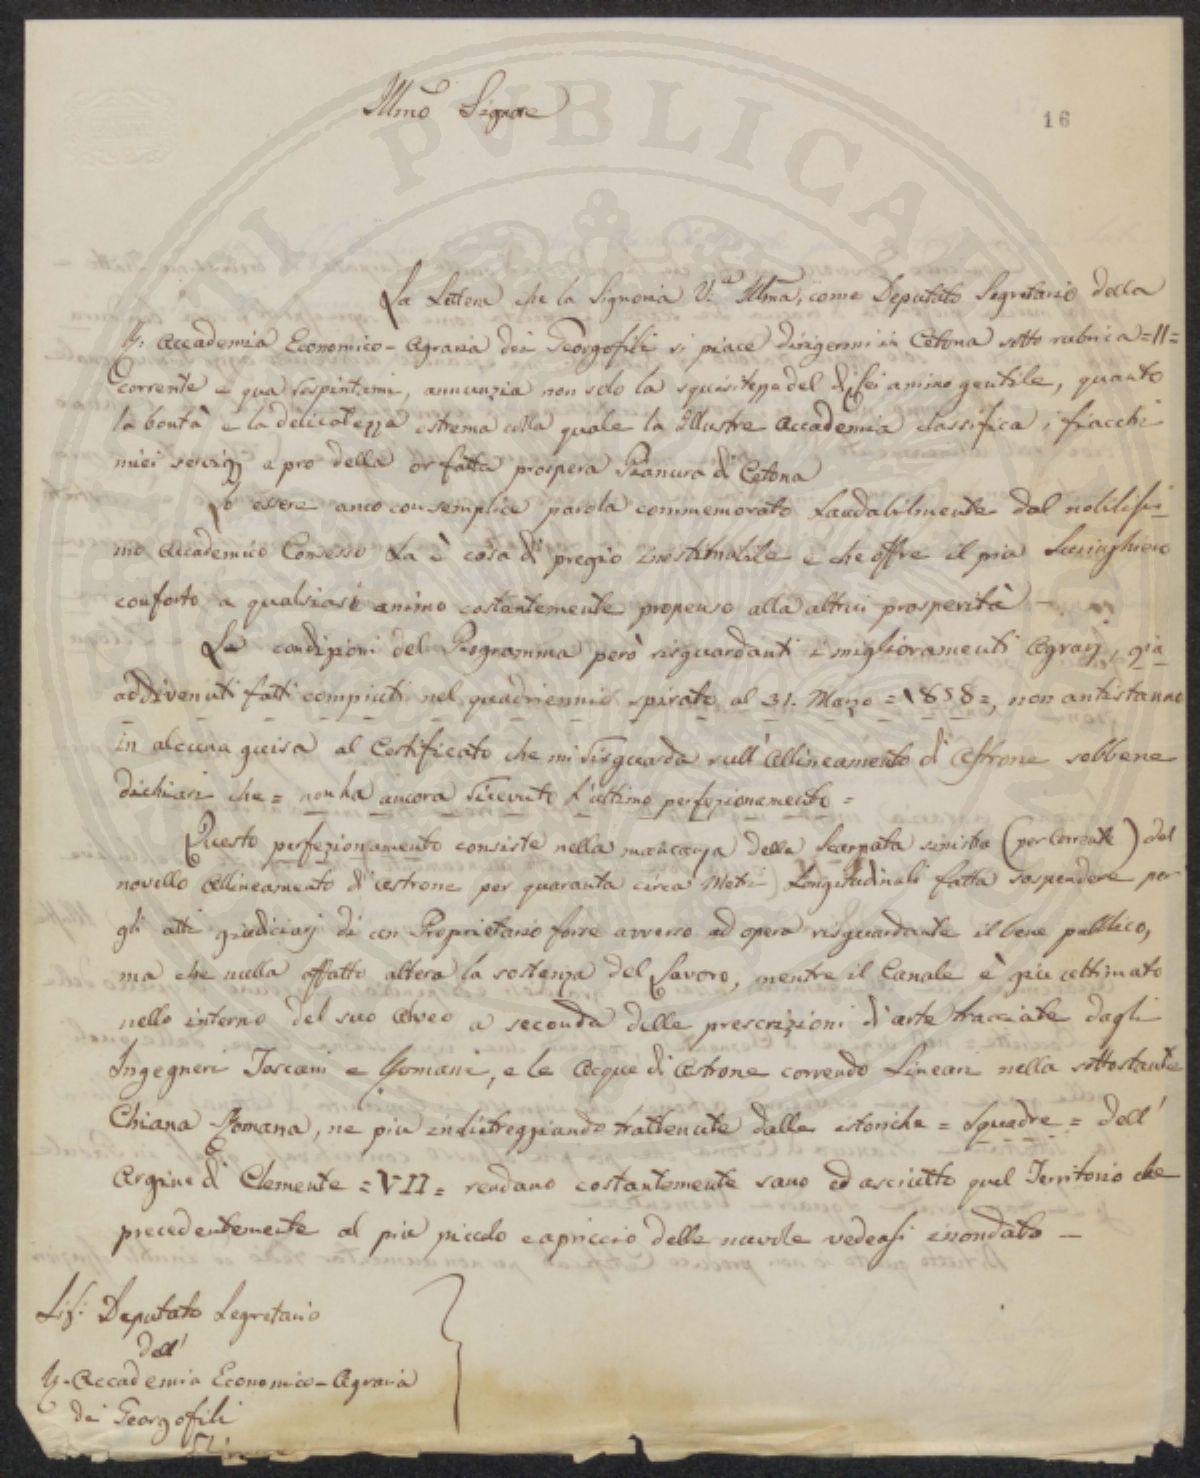 Illmo Signore
16
La Lettera che la Signoria V.a Illma, come Deputato Segretario della
R. Accademia Economico-Agraria dei Georgofili si piace dirigermi in Cetona sotto rubrica =II=
corrente e qua respintami, annunzia non solo la squisitezza del di Lei animo gentile, quanto
la bontà e la delicatezza estrema colla quale la Illustre Accademia classifica i fiacchi
miei servizj a pro della or fatta prospera Pianura di Cetona
Lo essere anco con semplice parola commemorato Laudabilmente dal nobilissi-
mo Accademico Consesso La è cosa di pregio inestimabile e che offre il più Lusinghiero
conforto a qualsiasi animo costantemente propenso alla altrui prosperità —
Le condizioni del Programma però risguardanti i miglioramenti Agrarj, già
addivenuti fatti compiuti nel quadriennio spirato al 31. Marzo =1858=, non antistanno
in alcuna guisa al Certificato che mi risguarda sull'Allineamento di Astrone sebbene
dichiari che = non ha ancora ricevuto l'ultimo perfezionamento =
Questo perfezionamento consiste nella mancanza della Scarpata sinistra (per corrente) del
novello Allineamento di Astrone per quaranta circa Metri Longitudinali fatta sospendere per
gli atti giudiciarj di un Proprietario forse avverso ad opera risguardante il bene pubblico,
ma che nulla affatto altera la sostanza del Lavoro, mentre il Canale è già ultimato
nello interno del suo Alveo a seconda delle prescrizioni d'arte tracciate dagli
Ingegneri Toscani e Romani, e le Acque di Astrone correndo Lineari nella sottostante
Chiana Romana, ne più indietreggiando trattenute dalle istoriche = Squadre = dell'
Argine di Clemente =VII= rendano costantemente sano ed asciutto quel Territorio che
precedentemente al più piccolo capriccio delle nuvole vedeasi inondato —
Sig: Deputato Segretario
dell'
R. Accademia Economico-Agraria
dei Georgofili
Firenze
PUBLICAT